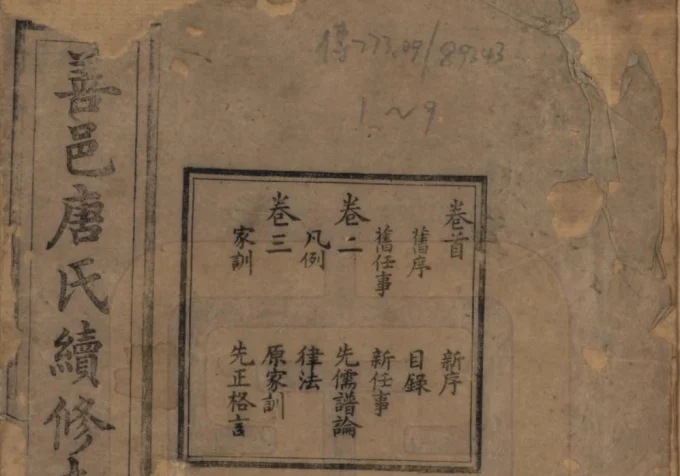 傳773.09/89.43
1~9
善邑唐氏續修
卷首 新序
舊序 目錄
舊任事 新任事
卷二 先儒譜論
凡例 律法
卷三 原家訓
家訓 先正格言